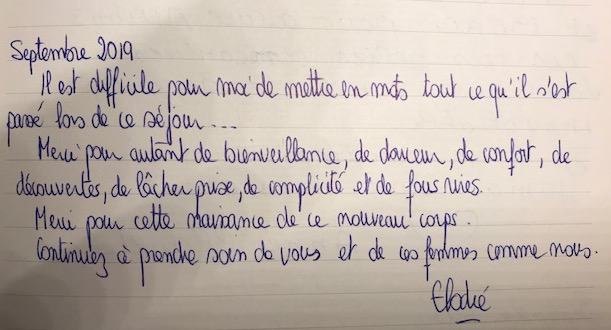 Septembre 2019
Il est difficile pour moi de mettre en mots tout ce qu'il s'est
passé lors de ce séjour...
Merci pour autant de bienveillance, de douceur, de confort, de
découvertes, de lâcher prise, de complicité et de fous rires.
Merci pour cette naissance de ce nouveau corps.
Continuez à prendre soin de vous et de ces femmes comme nous.
Elodie